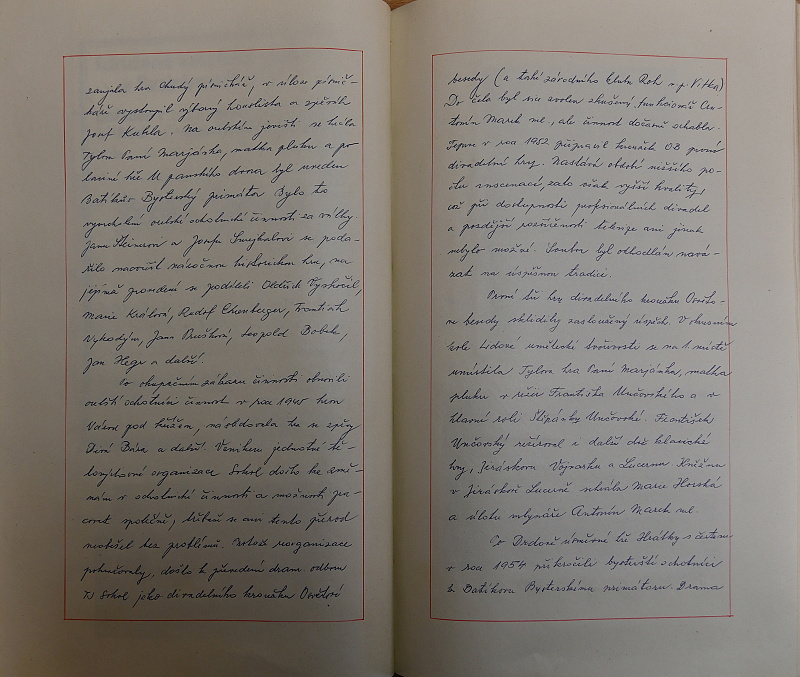 zaujala hra Chudý písničkář, v úloze písnič-
káře vystoupil výborný houslista a zpěvák
Josef Kukla. Na ouštském jevišti se hrála
Tylova Paní Marjánka, matka pluku a po
lariné hře U panského dvora byl uveden
Batličkův Bystrcký primátor. Bylo to
vyvrcholení ouštské ochotnické činnosti za války.
Janu Kleinerovi a Josefu Smejkalovi se poda-
řilo nacvičit náročnou historickou hru, na
jejímž provedení se podíleli Oldřich Vyskočil,
Marie Králová, Rudolf Ehrenberger, František
Vykodým, Jana Prušková, Leopold Bobek,
Jan Hegr a další.
Po okupačním zákazu činnosti obnovili
ouštští ochotníci činnost v roce 1945 hrou
Vdova pod křížem, následovala hra se zpěvy
Divá Bára a další. Vznikem jednotné tě-
lovýchovné organizace Sokol došlo ke změ-
nám v ochotnické činnosti a možnosti pra-
covat společně, třebaže se ani tento převod
neobešel bez problémů. Protože reorganizace
pokračovaly, došlo k převedení dram. odboru
TJ Sokol jako divadelního kroužku Osvětové
besedy (a také závodního klubu Roh n. p. Vitka)
Do čela byl sice zvolen zkušený funkcionář An-
tonín Marek ml., ale činnost dočasně ochabla.
Teprve v roce 1952 připravil kroužek OB první
divadelní hry. Nastává období nižšího po-
čtu inscenací, zato však vyšší kvality,
což při dostupnosti profesionálních divadel
a pozdější rozšířenosti televize ani jinak
nebylo možné. Soubor byl odhodlán navá-
zat na úspěšnou tradici.
První tři hry divadelního kroužku Osvěto-
vé besedy sklidily zasloužený úspěch. V okresním
kole Lidové umělecké tvořivosti se na 1. místě
umístila Tylova hra Paní Marjánka, matka
pluku v režii Františka Unčovského a v
hlavní roli Štěpánky Unčovské. František
Unčovský režíroval i další dvě klasické
hry, Jiráskovu Vojnarku a Lucernu. Kněžnu
v Jiráskově Lucerně sehrála Marie Horská
a úlohu mlynáře Antonín Marek ml.
Po Drdově úsměvné hře Hrátky s čertem
v roce 1954 přikročili bystřičtí ochotníci
k Batličkovu Bystrckému primátoru. Drama